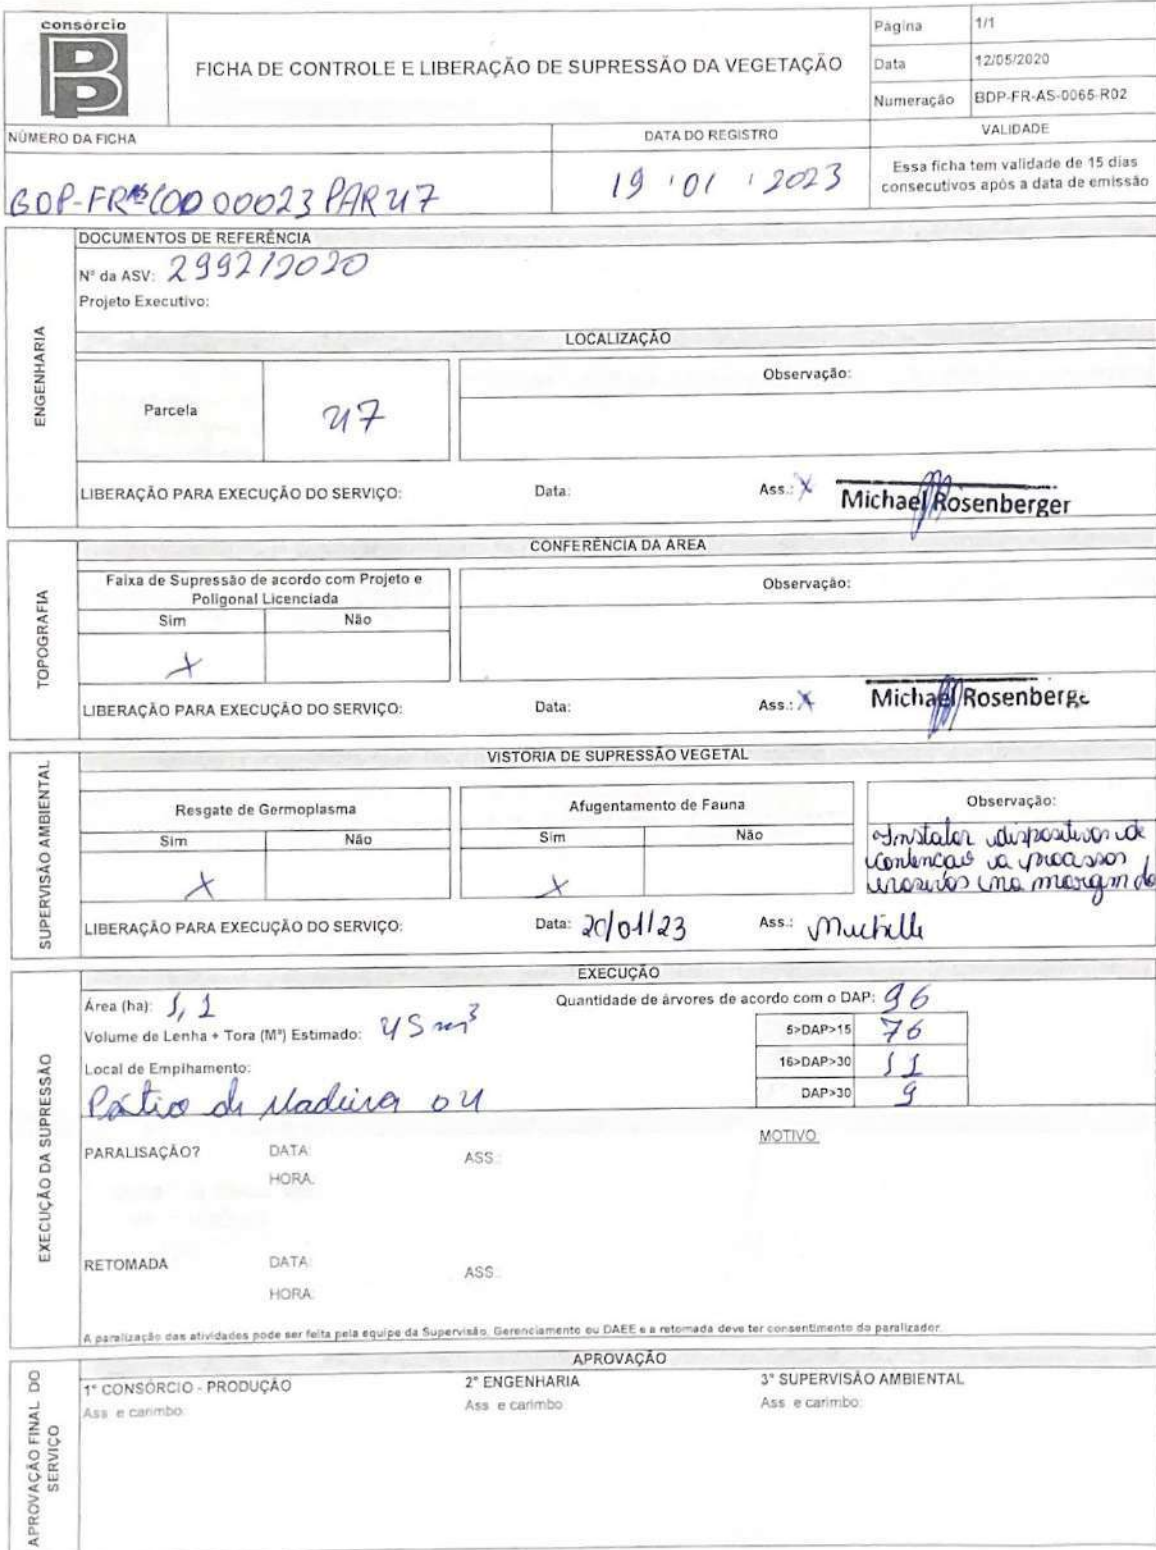 consórcio
FICHA DE CONTROLE E LIBERAÇÃO DE SUPRESSÃO DA VEGETAÇÃO
Página 1/1
Data 12/05/2020
Numeração BDP-FR-AS-0065-R02
NÚMERO DA FICHA
DATA DO REGISTRO
VALIDADE
00023 PAR 47
19 01 2023
Essa ficha tem validade de 15 dias
consecutivos após a data de emissão
ENGENHARIA
DOCUMENTOS DE REFERÊNCIA
Nº da ASV: 2992/2020
Projeto Executivo:
LOCALIZAÇÃO
Parcela 47
Observação:
LIBERAÇÃO PARA EXECUÇÃO DO SERVIÇO: Data: Ass.: X Michael Rosenberger
TOPOGRAFIA
CONFERÊNCIA DA ÁREA
Faixa de Supressão de acordo com Projeto e
Poligonal Licenciada
Observação:
Sim Não
X
LIBERAÇÃO PARA EXECUÇÃO DO SERVIÇO: Data: Ass.: X Michael Rosenberge
SUPERVISÃO AMBIENTAL
VISTORIA DE SUPRESSÃO VEGETAL
Resgate de Germoplasma
Sim Não
X
Afugentamento de Fauna
Sim Não
X
Observação:
Instalar dispositivos de
contencao a processos
erosivos na margem do
LIBERAÇÃO PARA EXECUÇÃO DO SERVIÇO: Data: 20/01/23 Ass.:
EXECUÇÃO DA SUPRESSÃO
EXECUÇÃO
Área (ha): 1,1
Quantidade de árvores de acordo com o DAP: 96
Volume de Lenha + Tora (M³) Estimado: 45 m³
5>DAP>15 76
Local de Empilhamento:
16>DAP>30 11
Pátio de Madeira 04
DAP>30 9
PARALISAÇÃO? DATA: ASS.: MOTIVO
HORA:
RETOMADA DATA: ASS.:
HORA:
A paralização das atividades pode ser feita pela equipe da Supervisão, Gerenciamento ou DAEE e a retomada deve ter consentimento do paralizador.
APROVAÇÃO FINAL DO
SERVIÇO
APROVAÇÃO
1° CONSÓRCIO - PRODUÇÃO
Ass e carimbo:
2° ENGENHARIA
Ass e carimbo
3° SUPERVISÃO AMBIENTAL
Ass e carimbo: